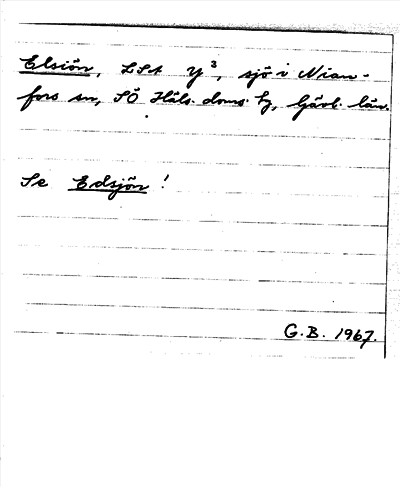 Elsiön, LSA Y³, sjö i Nian-
fors sn, SÖ Häls. doms. hg, Gävl. län.
Se Edsjön!
G.B. 1967.